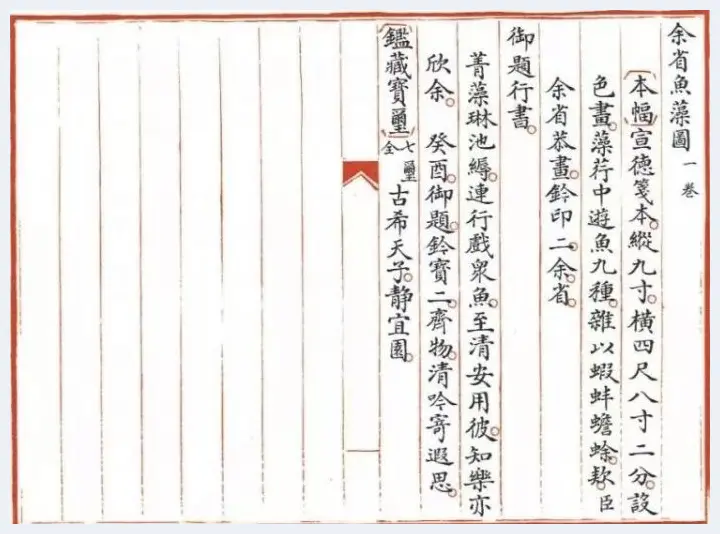 余省魚藻圖一卷
〔本幅〕宣德箋本。縱九寸。橫四尺八寸二分。設
色畫。藻荇中遊魚九種。雜以蝦蚌蟾蜍。款。臣
余省恭畫。鈐印二。余省。
御題行書。
菁藻琳池縟。連行戲衆魚。至清安用彼。知樂亦
欣余。 癸酉。御題。鈐寶二。齊物。清吟寄遐思。
〔鑑藏寶璽〕七璽全。古希天子。靜宜園。